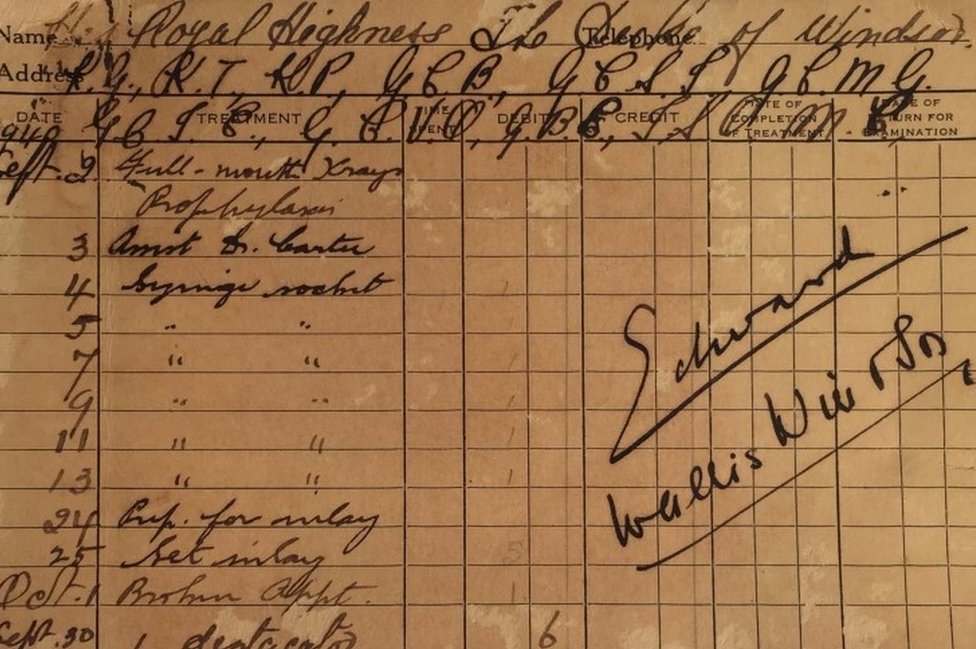 Name His Royal Highness The Duke of Windsor.
Telephone
Address K.G., K.T., K.P., G.C.B., G.C.S.I., G.C.M.G.
DATE TREATMENT TIME SPENT DEBIT CREDIT DATE OF COMPLETION OF TREATMENT DATE OF RETURN FOR EXAMINATION
1940 G.C.I.E., G.C.V.O., G.B.E.,
Sept. 2 Full-mouth Xrays
Prophylaxis
3 Amot Dr. Carter
4 Syringe socket 1
5 " "
7 " " 1
9 " " 1
11 " " 1
13 " " 1
24 Prep. for inlay
25 Set inlay 5
Oct. 1 Broken Appt. 1
Sept. 30 1 6
Edward
Wallis Windsor